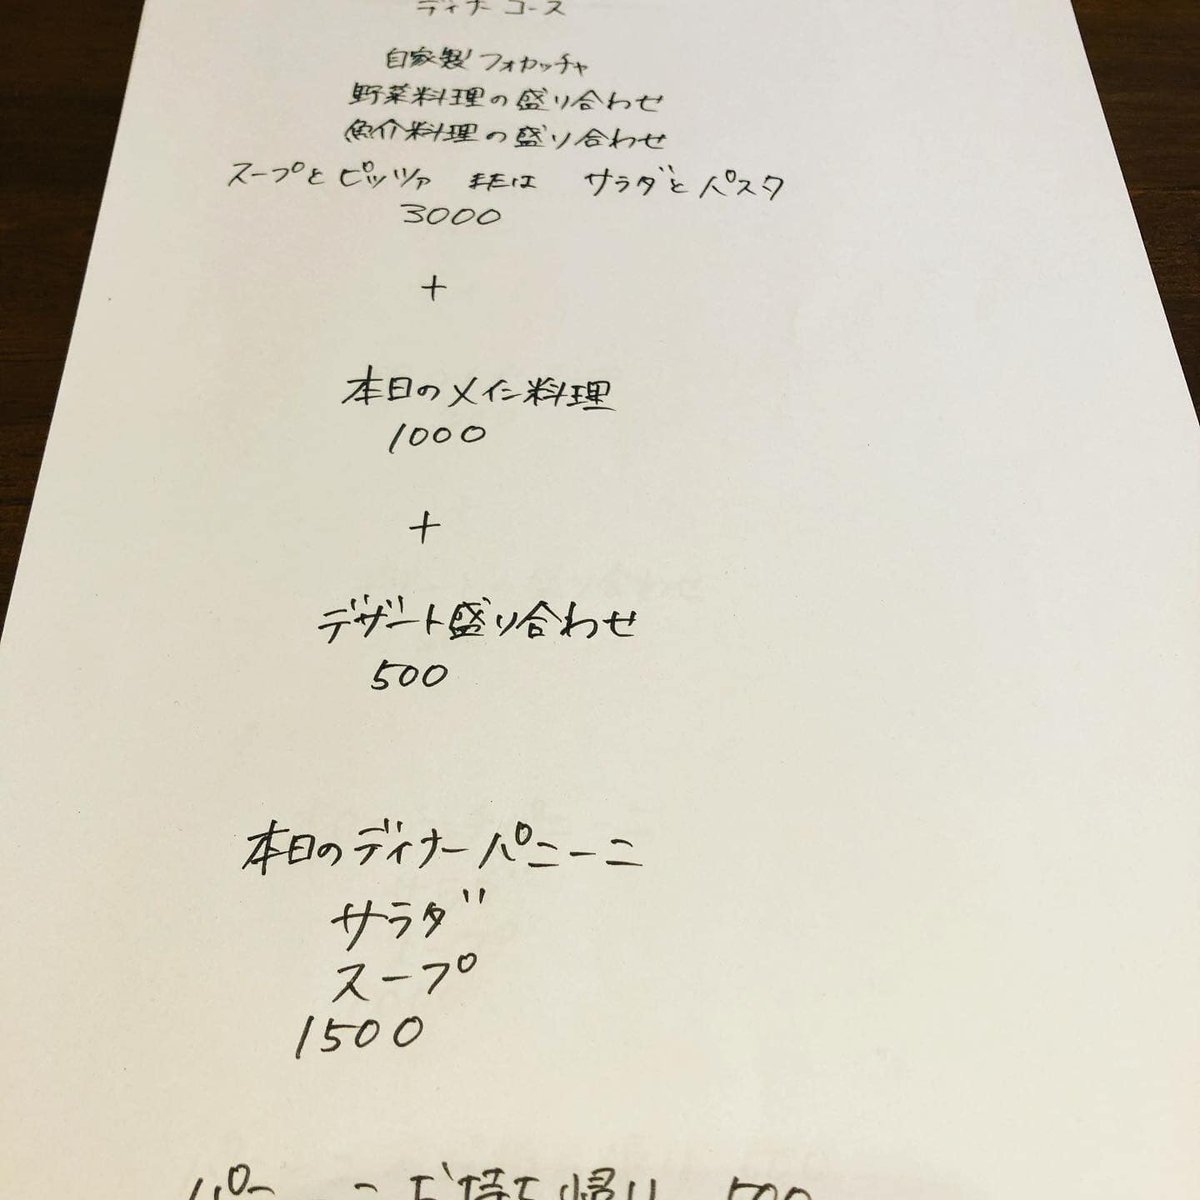 ディナーコース
自家製フォカッチャ
野菜料理の盛り合わせ
魚介料理の盛り合わせ
スープとピッツァ または サラダとパスタ
3000
+
本日のメイン料理
1000
+
デザート盛り合わせ
500
本日のディナーパニーニ
サラダ
スープ
1500
パニーニお持ち帰り 500